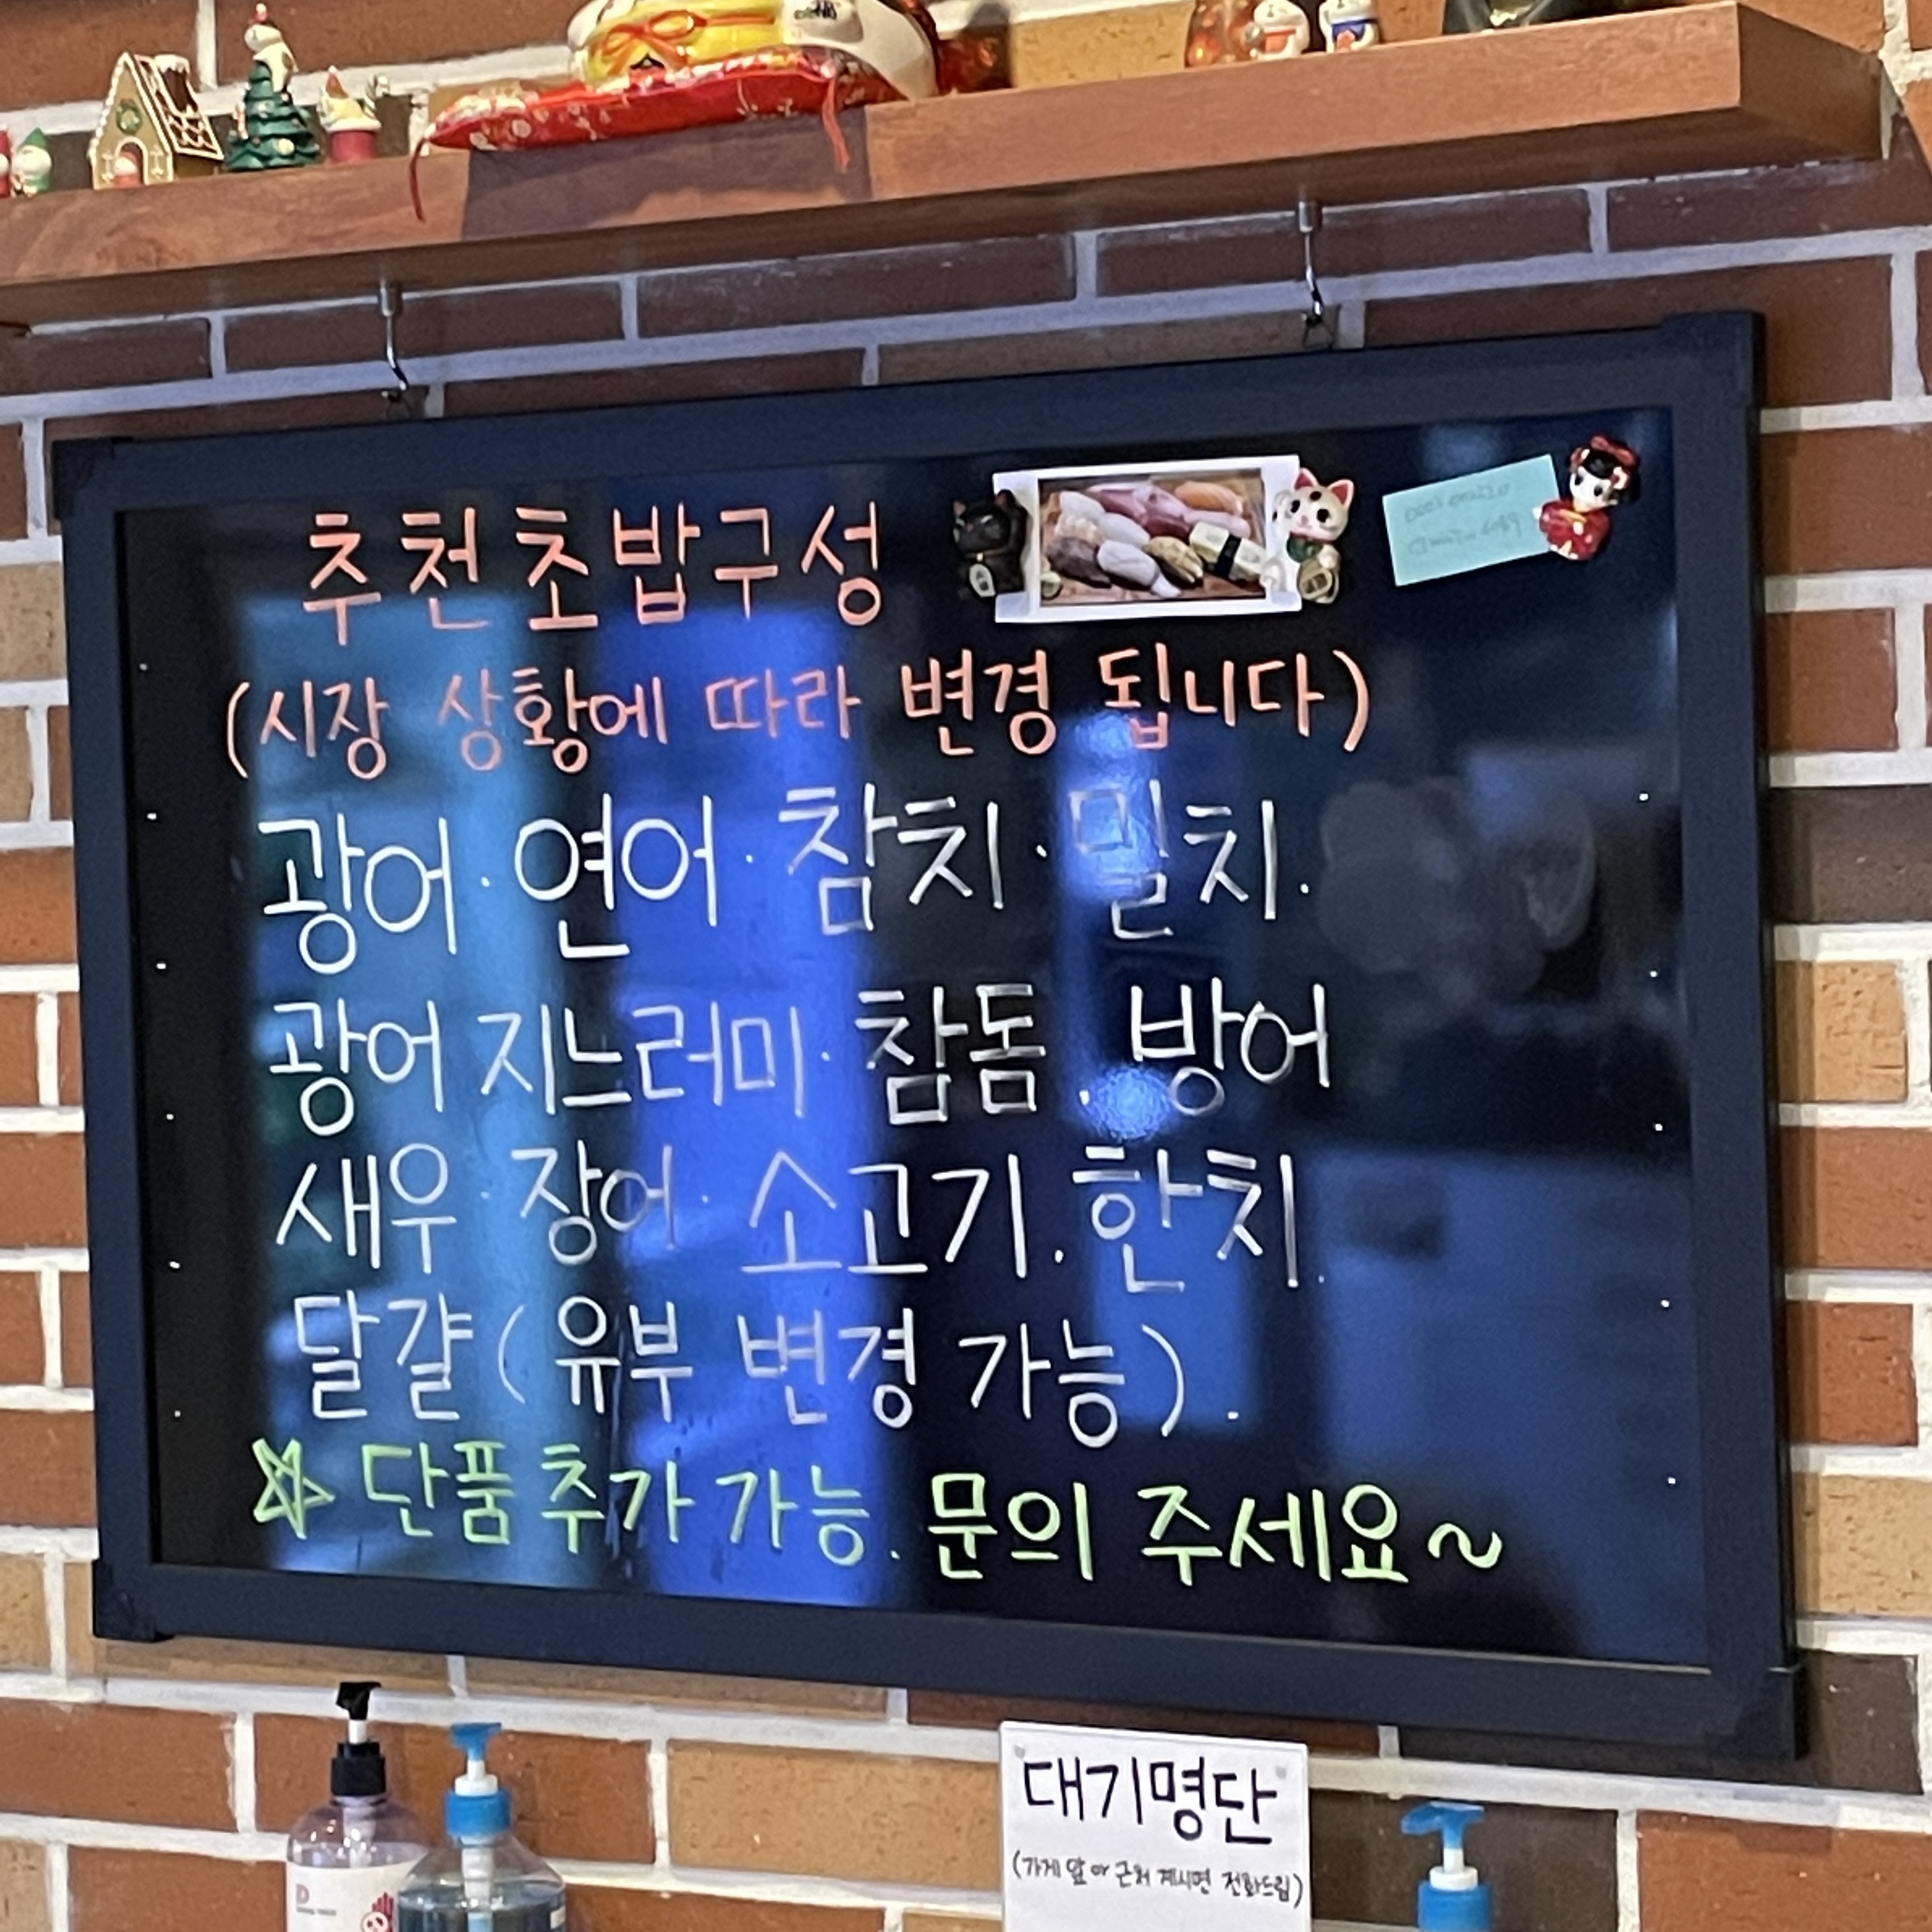 추천초밥구성
(시장 상황에 따라 변경 됩니다)
광어·연어·참치·밀치.
광어 지느러미·참돔.방어
새우·장어·소고기.한치.
달걀(유부 변경 가능).
☆ 단품추가 가능. 문의 주세요~
대기명단
(가게 앞 or 근처 계시면 전화드림)